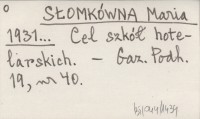 o
SŁOMKÓWNA Maria
1931... Cel szkół hote-
larskich. — Gaz. Podh.
19, nr 40.